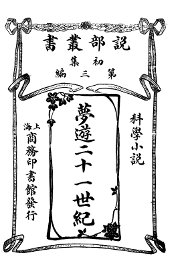 說部叢書
初集
第三編
科學小說
夢遊二十一世紀
上海商務印書館發行